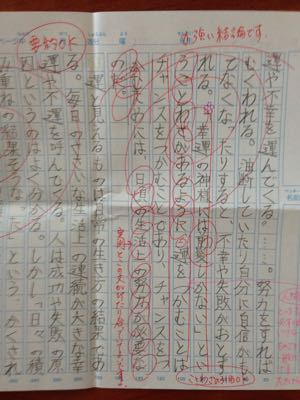 運や不幸を運んでくる。……努力をすれば
むくわれる。油断していたり自分に自信がも
てなくなったりすると、不幸や失敗がおとず
れる。「幸運の神様には前髪しかない」とい
うことわざがあるように「運をつかむ」とは
チャンスをつかむことであり、チャンスをつ
かむためには、日頃の生活上の努力が必要な
のだ。
運と見えるものは日常の生き方の結果であ
る。毎日のささいな生活上の連続が大きな幸
運や不運を呼んでくる。人は成功や失敗の原
因というのはよく分かる。しかし「日々の積
み重ねの結果そうな」というかくされ
力強い結論です。
要約OK
ことわざの引用◎